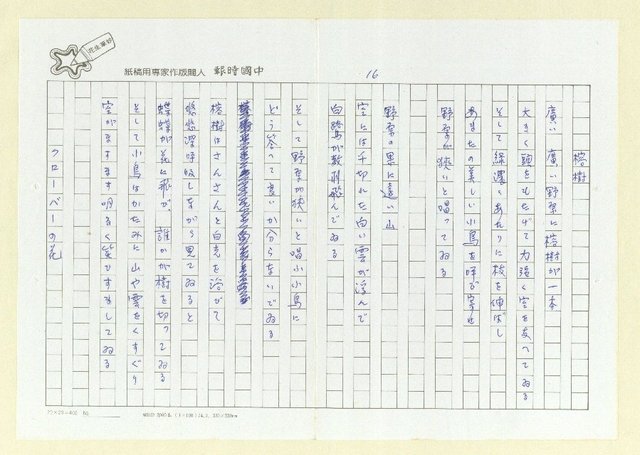 16
榕樹
廣い 廣い野原に榕樹が一本
大きく頭をもたげて力强く空を支へてゐる
そして綠濃くあたりに枝を伸ばし
あまたの美しい小鳥を呼び寄せ
野原が狹いと唱つてゐる
野原の果に遠い山
空には千切れた白い雲が浮んで
白鷺が数羽飛んでゐる
そして野原が狹いと唱ふ小鳥に
どう答へて良いか分らないでゐる
榕樹はさんさんと白光を浴びて
悠悠深呼吸しながら見てゐると
蝶蝶が花に飛び 誰かが樹を切つてゐる
そして小鳥はかたみに山や雲をくすぐり
空がますます明るく笑ひすましてゐる
クローバーの花
中國時報 人間版作家專用稿紙
花生筆抄
20×20=400